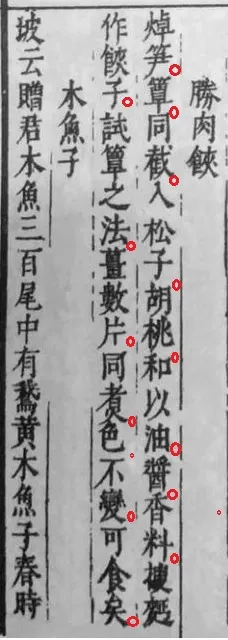 勝肉䬪
焯笋蕈同截入松子胡桃和以油醬香料搜麪
作䬪子試蕈之法薑數片同煮色不變可食矣
木魚子
坡云贈君木魚三百尾中有鵞黄木魚子春時